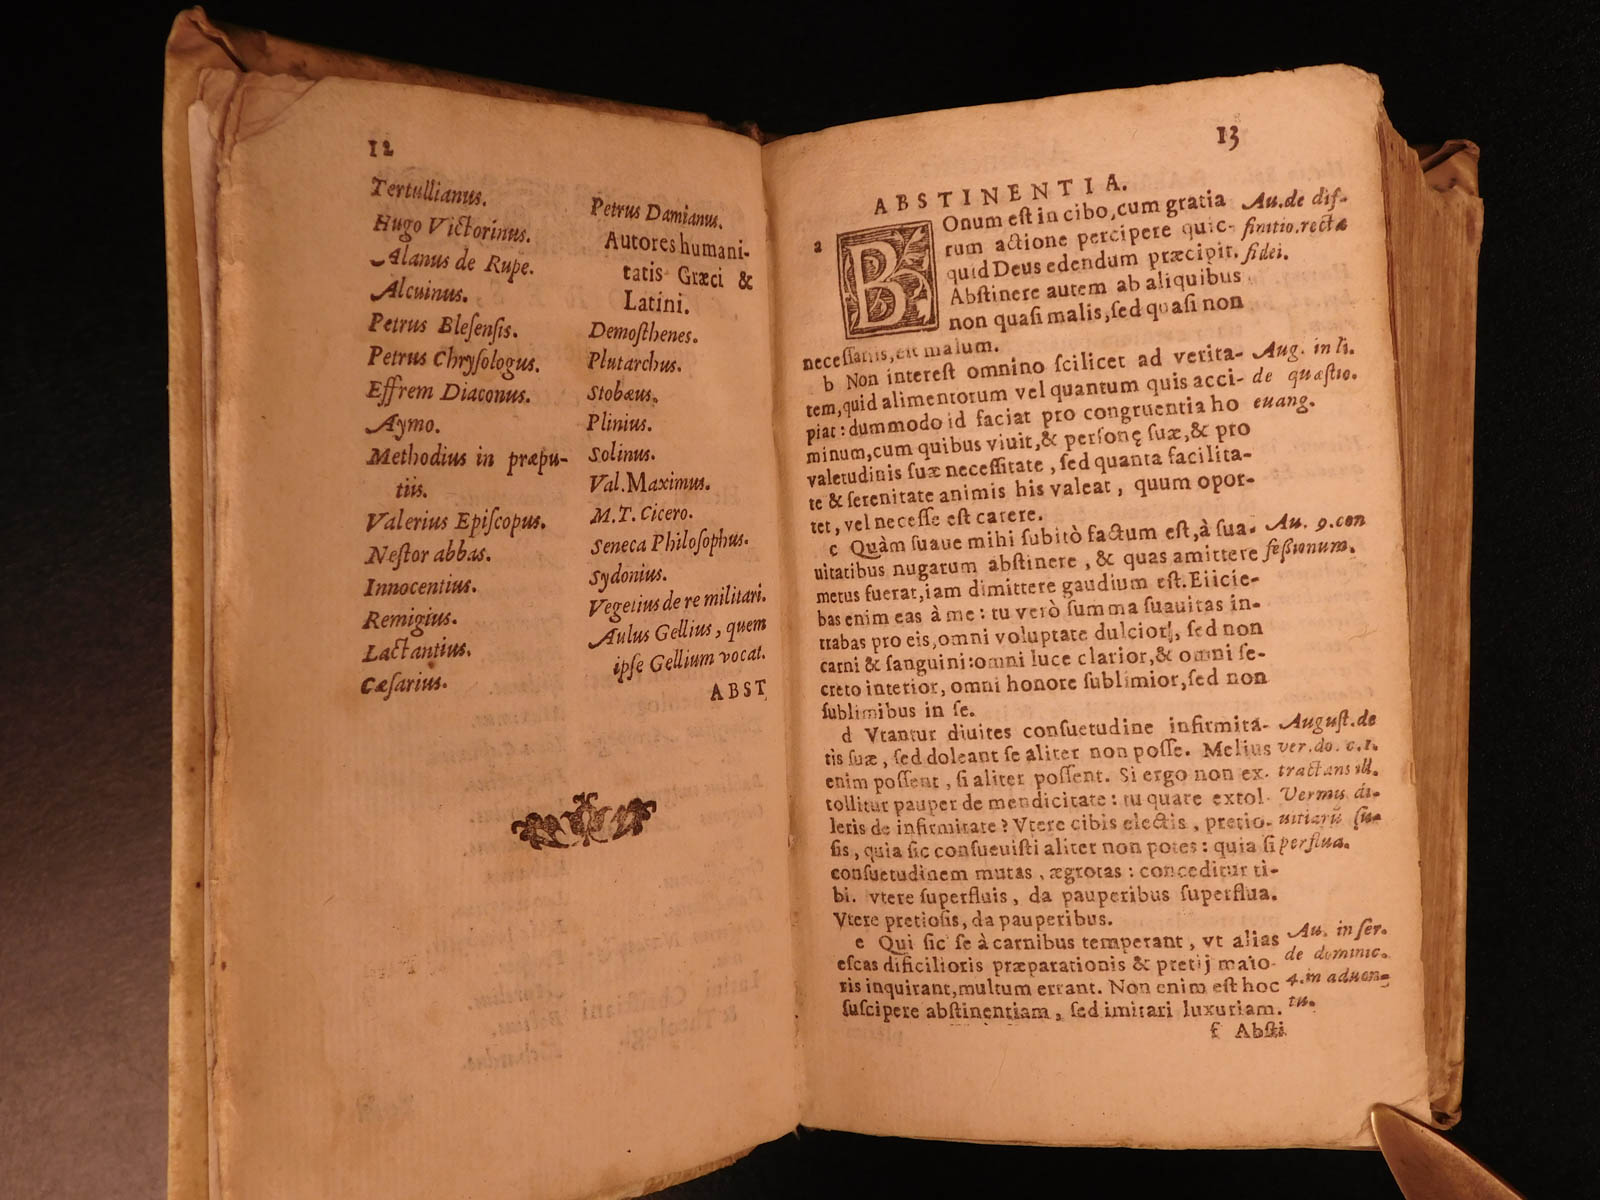 12
Tertullianus.
Hugo Victorinus.
Alanus de Rupe.
Alcuinus.
Petrus Blesensis.
Petrus Chrysologus.
Effrem Diaconus.
Aymo.
Methodius in præpu-
tiis.
Valerius Episcopus.
Nestor abbas.
Innocentius.
Remigius.
Lactantius.
Cæsarius.
Petrus Damianus.
Autores humani-
tatis Græci &
Latini.
Demosthenes.
Plutarchus.
Stobæus.
Plinius.
Solinus.
Val. Maximus.
M.T. Cicero.
Seneca Philosophus.
Sydonius.
Vegetius de re militari.
Aulus Gellius, quem
ipse Gellium vocat.
ABST
13
ABSTINENTIA.
a BOnum est in cibo, cum gratia
rum actione percipere quic-
quid Deus edendum præcipit.
Abstinere autem ab aliquibus
non quasi malis, sed quasi non
necessariis, est malum.
Au. de dif-
finitio. rectæ
fidei.
b Non interest omnino scilicet ad verita-
tem, quid alimentorum vel quantum quis acci-
piat: dummodo id faciat pro congruentia ho
minum, cum quibus viuit, & personę suæ, & pro
valetudinis suæ necessitate, sed quanta facilita-
te & serenitate animis his valeat, quum opor-
tet, vel necesse est carere.
Aug. in li.
de quæstio.
euang.
c Quàm suaue mihi subitò factum est, à sua-
uitatibus nugarum abstinere, & quas amittere
metus fuerat, iam dimittere gaudium est. Eiicie-
bas enim eas à me: tu verò summa suauitas in-
trabas pro eis, omni voluptate dulcior, sed non
carni & sanguini: omni luce clarior, & omni se-
creto interior, omni honore sublimior, sed non
sublimibus in se.
Au. 9. con
fessionum.
d Vtantur diuites consuetudine infirmita-
tis suæ, sed doleant se aliter non posse. Melius
enim possent, si aliter possent. Si ergo non ex-
tollitur pauper de mendicitate: tu quare extol-
leris de infirmitate? Vtere cibis electis, pretio-
sis, quia sic consueuisti aliter non potes: quia si
consuetudinem mutas, ægrotas: conceditur ti-
bi. vtere superfluis, da pauperibus superflua.
Vtere pretiosis, da pauperibus.
August. de
ver. do. c. 1.
tractans ill.
Vermis di-
uitiarū su-
perflua.
e Qui sic se à carnibus temperant, vt alias
escas dificilioris præparationis & pretij maio-
ris inquirant, multum errant. Non enim est hoc
suscipere abstinentiam, sed imitari luxuriam.
Au. in ser.
de dominic.
4. in aduen-
tu.
f Absti